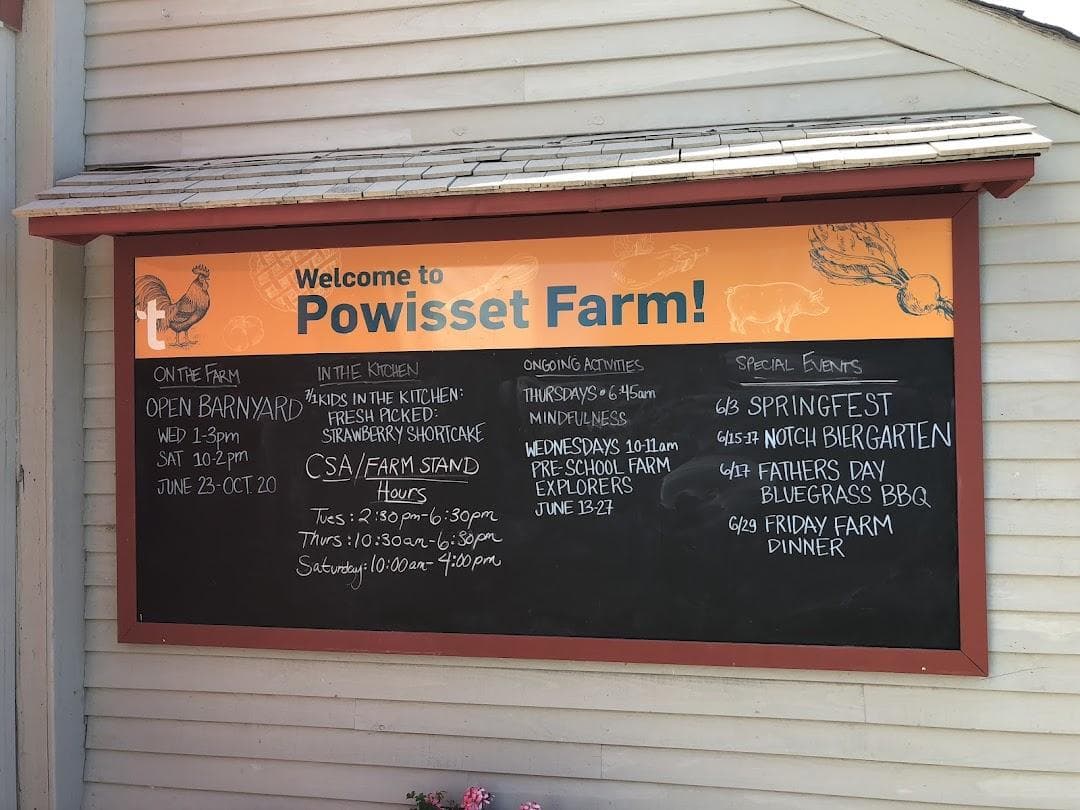 t
Welcome to
Powisset Farm!
ON THE FARM
OPEN BARNYARD
WED 1-3pm
SAT 10-2pm
JUNE 23-OCT. 20
IN THE KITCHEN
7/1 KIDS IN THE KITCHEN:
FRESH PICKED:
STRAWBERRY SHORTCAKE
CSA/FARM STAND
Hours
Tues: 2:30pm-6:30pm
Thurs: 10:30am-6:30pm
Saturday: 10:00am-4:00pm
ONGOING ACTIVITIES
THURSDAYS • 6:45am
MINDFULNESS
WEDNESDAYS 10-11am
PRE-SCHOOL FARM
EXPLORERS
JUNE 13-27
SPECIAL EVENTS
6/3 SPRINGFEST
6/15-17 NOTCH BIERGARTEN
6/17 FATHERS DAY
BLUEGRASS BBQ
6/29 FRIDAY FARM
DINNER